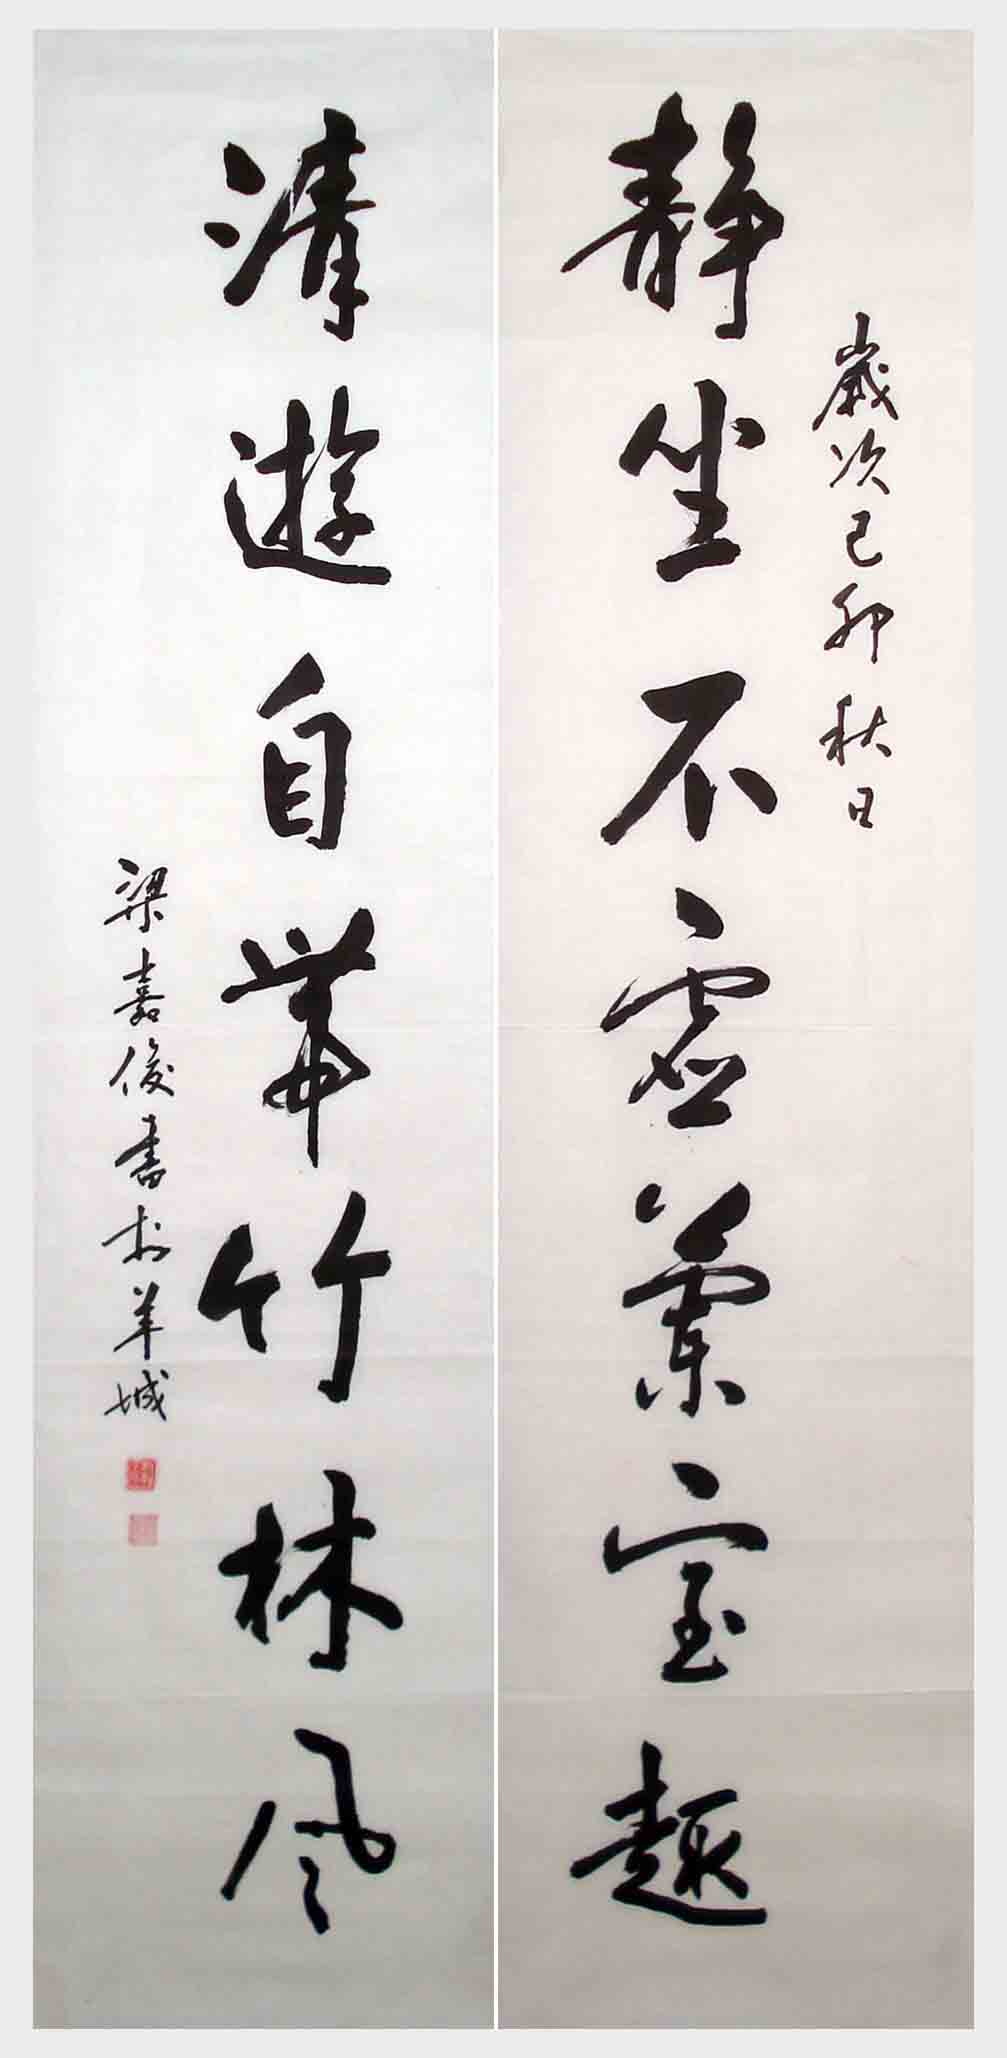 歲次己卯秋日
靜坐不虛蘭室趣
清遊自帶竹林風
梁嘉俊書於羊城